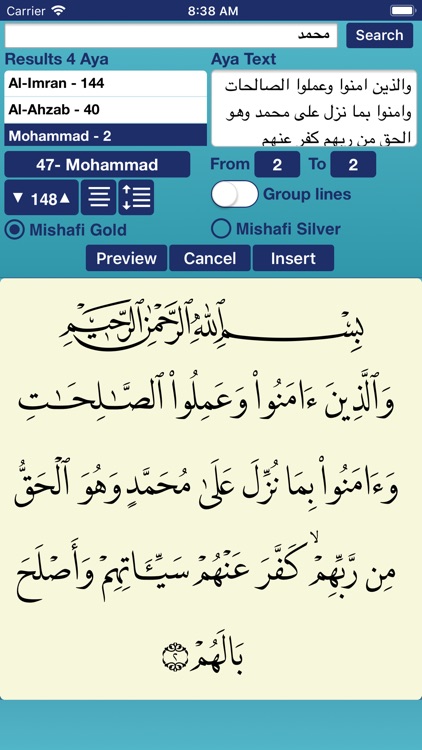 Carrier 8:38 AM
محمد Search
Results 4 Aya Aya Text
Al-Imran - 144
Al-Ahzab - 40
Mohammad - 2
والذين امنوا وعملوا الصالحات
وامنوا بما نزل على محمد وهو
الحق من ربهم كفر عنهم
47- Mohammad From 2 To 2
▼ 148▲ Group lines
Mishafi Gold Mishafi Silver
Preview Cancel Insert
بِسْمِ ٱللَّهِ ٱلرَّحْمَٰنِ ٱلرَّحِيمِ
وَٱلَّذِينَ ءَامَنُوا۟ وَعَمِلُوا۟ ٱلصَّٰلِحَٰتِ
وَءَامَنُوا۟ بِمَا نُزِّلَ عَلَىٰ مُحَمَّدٍ وَهُوَ ٱلْحَقُّ
مِن رَّبِّهِمْ ۙ كَفَّرَ عَنْهُمْ سَيِّـَٔاتِهِمْ وَأَصْلَحَ
بَالَهُمْ ۝٢